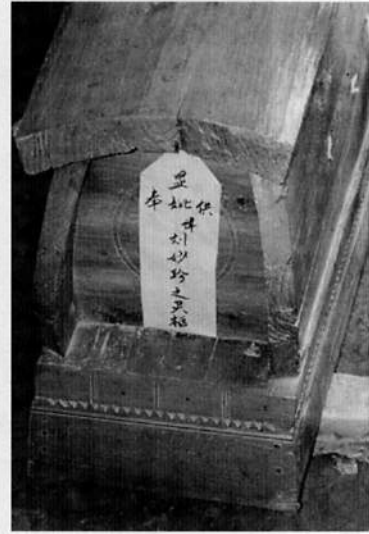 供
显妣刘妙珍之灵柩
奉